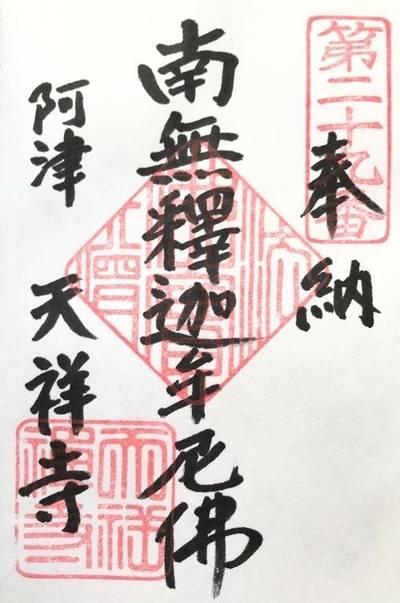 第二十九番
奉納
南無釋迦牟尼佛
阿津 天祥寺